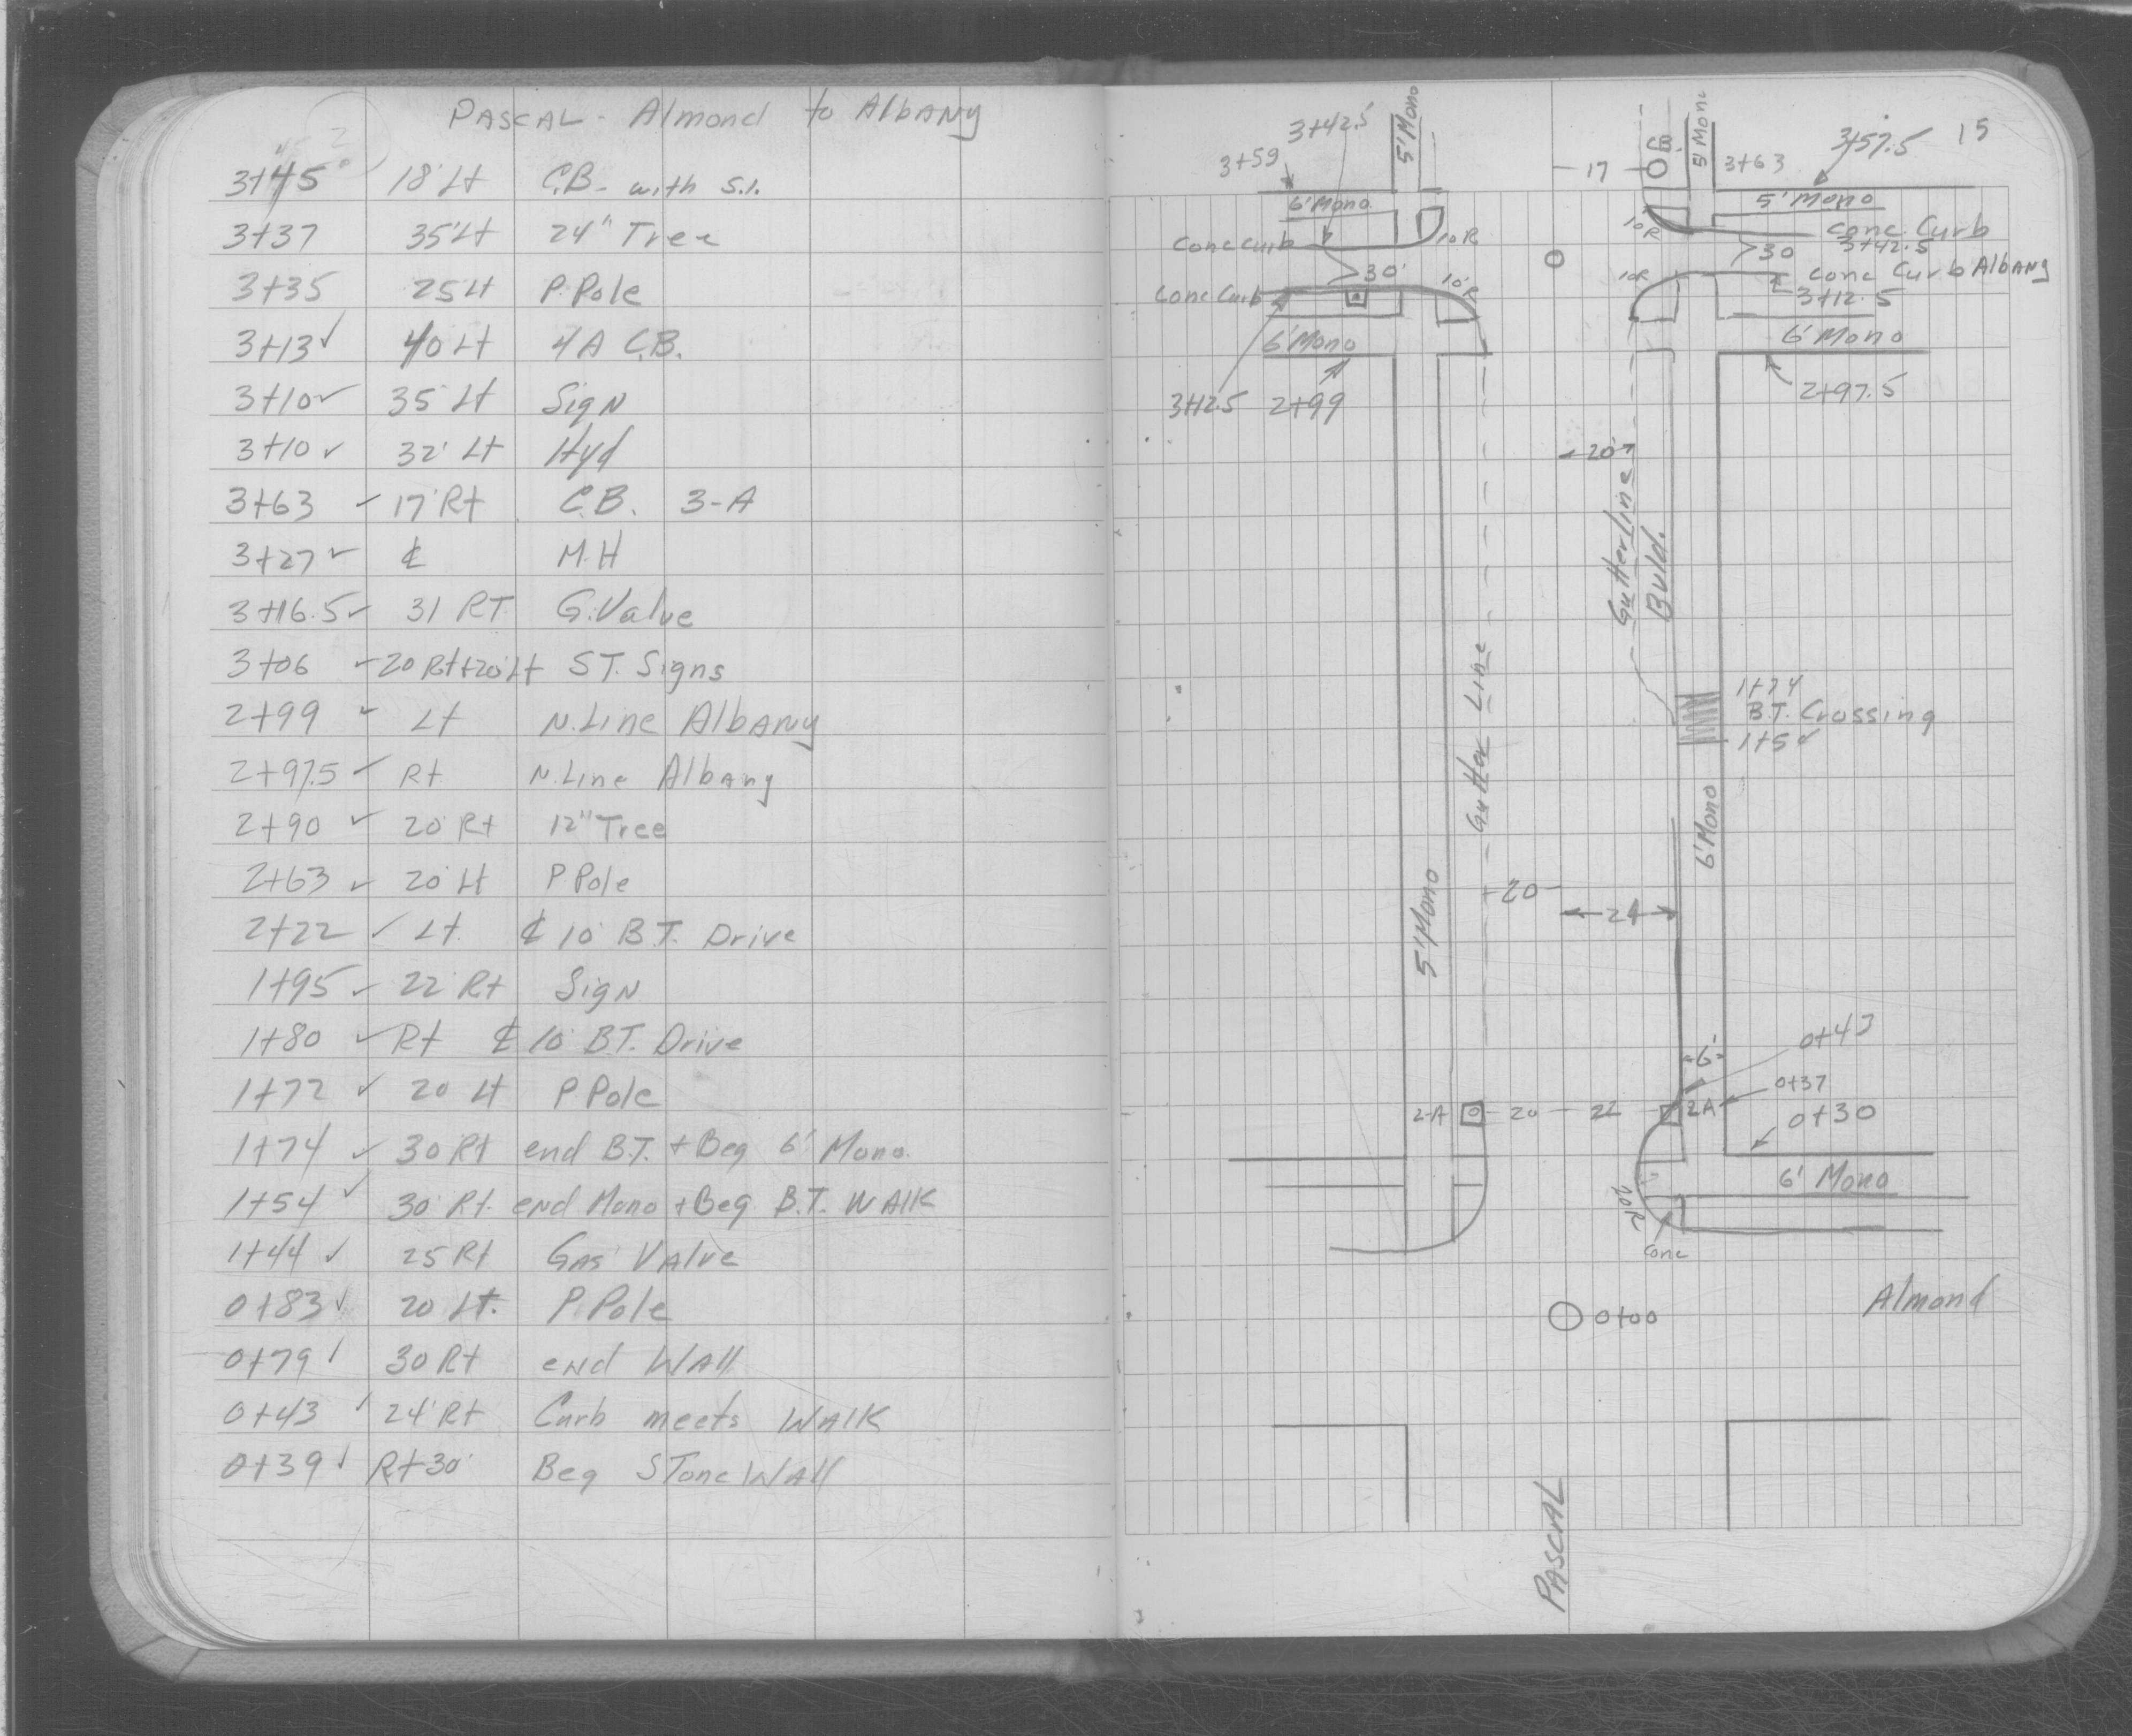 PASCAL - Almond to Albany
3+45 18' Lt C.B. with S.I.
3+37 35' Lt 24" Tree
3+35 25 Lt P. Pole
3+13 ✓ 40 Lt 4A C.B.
3+10 ✓ 35' Lt Sign
3+10 ✓ 32' Lt Hyd
3+63 ✓ 17' Rt C.B. 3-A
3+27 ✓ ℄ M.H
3+16.5 ✓ 31 RT G. Valve
3+06 ✓ 20 Rt + 20 Lt ST. Signs
2+99 ✓ Lt N. Line Albany
2+97.5 ✓ Rt N. Line Albany
2+90 ✓ 20' Rt 12" Tree
2+63 ✓ 20' Lt P Pole
2+22 ✓ Lt ℄ 10' B.T. Drive
1+95 ✓ 22' Rt Sign
1+80 ✓ Rt ℄ 10' B.T. Drive
1+72 ✓ 20 Lt P Pole
1+74 ✓ 30 Rt end B.T. + Beg 6' Mono.
1+54 ✓ 30' Rt. end Mono + Beg B.T. WALK
1+44 ✓ 25 Rt GAS VALVE
0+83 ✓ 20 Lt. P. Pole
0+79 ✓ 30 Rt end WAll
0+43 ✓ 24' Rt Curb meets WALK
0+39 ✓ Rt 30' Beg STone WAll
15
3+42.5'
5' Mono
C.B.
5' Mono
3+57.5
3+59
17
3+63
6' Mono
5' Mono
10R
10R
Conc Curb
Conc. Curb
3+42.5
30'
30
Conc Curb
10'R
10R
Conc Curb Albany
3+12.5
6' Mono
6' Mono
3+12.5 2+99
2+97.5
20'
Gutterline
Build.
Gutter Line
1+74
B.T. Crossing
1+54
6' Mono
5' Mono
20
24
6'
0+43
0+37
2-A 20 22 2A
0+30
6' Mono
10'R
Conc
Almond
0+00
PASCAL